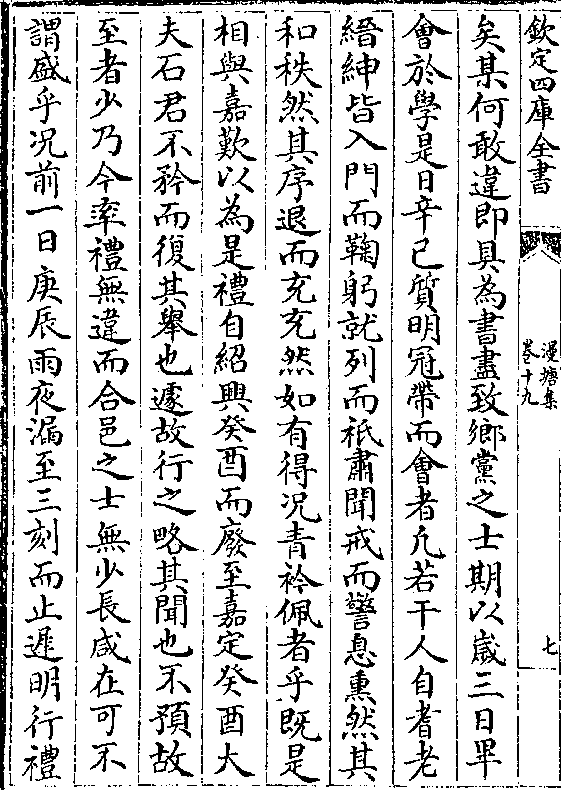 欽定四庫全書
漫塘集
卷十九
七
矣某何敢違即具為書盡致鄉黨之士期以歲三日畢
會於學是日辛巳質明冠帶而會者凡若干人自耆老
縉紳皆入門而鞠躬就列而祗肅聞戒而警息熏然其
和秩然其序退而充充然如有得况青衿佩者乎既是
相與嘉歎以為是禮自紹興癸酉而廢至嘉定癸酉大
夫石君不矜而復其舉也遽故行之略其聞也不預故
至者少乃今率禮無違而合邑之士無少長咸在可不
謂盛乎况前一日庚辰雨夜漏至三刻而止遲明行禮